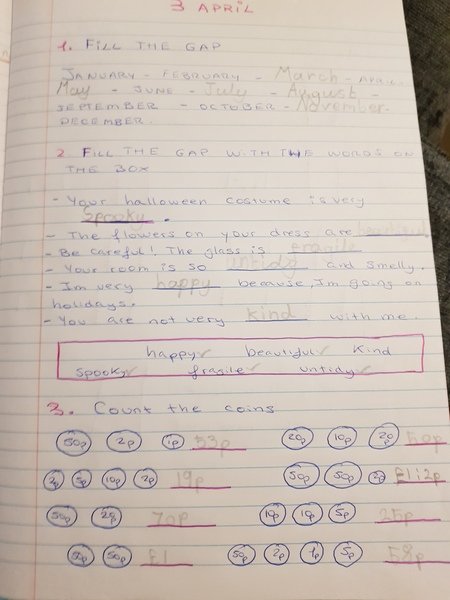 3 APRIL
1. FILL THE GAP
JANUARY - FEBRUARY - March - APRIL
May - JUNE - July - August -
SEPTEMBER - OCTOBER - November -
DECEMBER.
2. FILL THE GAP WITH THE WORDS ON
THE BOX
- Your halloween costume is very
spooky.
- The flowers on your dress are beautiful.
- Be careful! The glass is fragile
- Your room is so untidy and smelly.
- Im very happy because, Im going on
holidays.
- You are not very kind with me.
happy✓ beautiful✓ Kind
spooky✓ fragile✓ untidy✓
3. Count the coins
50p 2p 1p 53p 20p 10p 20p 50p
2p 5p 10p 2p 19p 50p 50p 2p £1:2p
50p 20p 70p 10p 10p 5p 25p
50p 50p £1 50p 2p 1p 5p 58p